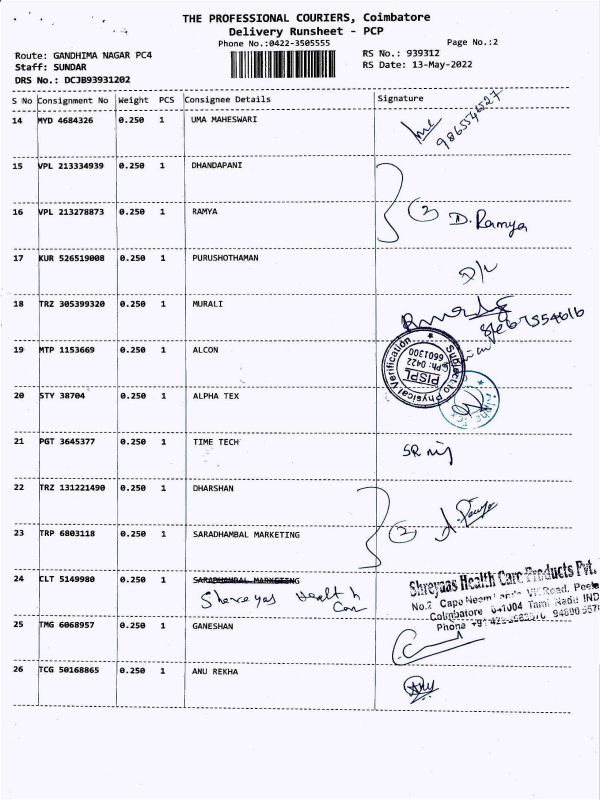 THE PROFESSIONAL COURIERS, Coimbatore
Delivery Runsheet - PCP
Phone No.:0422-3505555
Page No.:2
Route: GANDHIMA NAGAR PC4
RS No.: 939312
Staff: SUNDAR
RS Date: 13-May-2022
DRS No.: DCJB93931202
S No Consignment No Weight PCS Consignee Details Signature
14 MYD 4684326 0.250 1 UMA MAHESWARI
15 VPL 213334939 0.250 1 DHANDAPANI
16 VPL 213278873 0.250 1 RAMYA
(2) D. Ramya
17 KUR 526519008 0.250 1 PURUSHOTHAMAN
D/L
18 TRZ 305399320 0.250 1 MURALI
19 MTP 1153669 0.250 1 ALCON
Subject to Physical Verification
PISPL
Ph: 0422
6601300
20 STY 38704 0.250 1 ALPHA TEX
21 PGT 3645377 0.250 1 TIME TECH
22 TRZ 131221490 0.250 1 DHARSHAN
(2)
23 TRP 6803118 0.250 1 SARADHAMBAL MARKETING
24 CLT 5149980 0.250 1 SARADHAMBAL MARKETING
Shereyas Health
Care
Shreyaas Health Care Products Pvt.
No.2 Cape Road, Peela
Coimbatore 641004 Tamil Nadu IND
Phone
25 TMG 6068957 0.250 1 GANESHAN
26 TCG 50168865 0.250 1 ANU REKHA
Anu